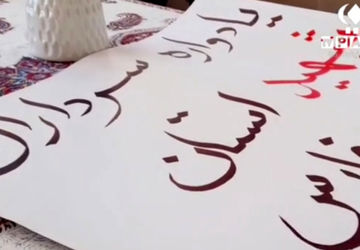 یادواره سرداران
شهید استان
فارس